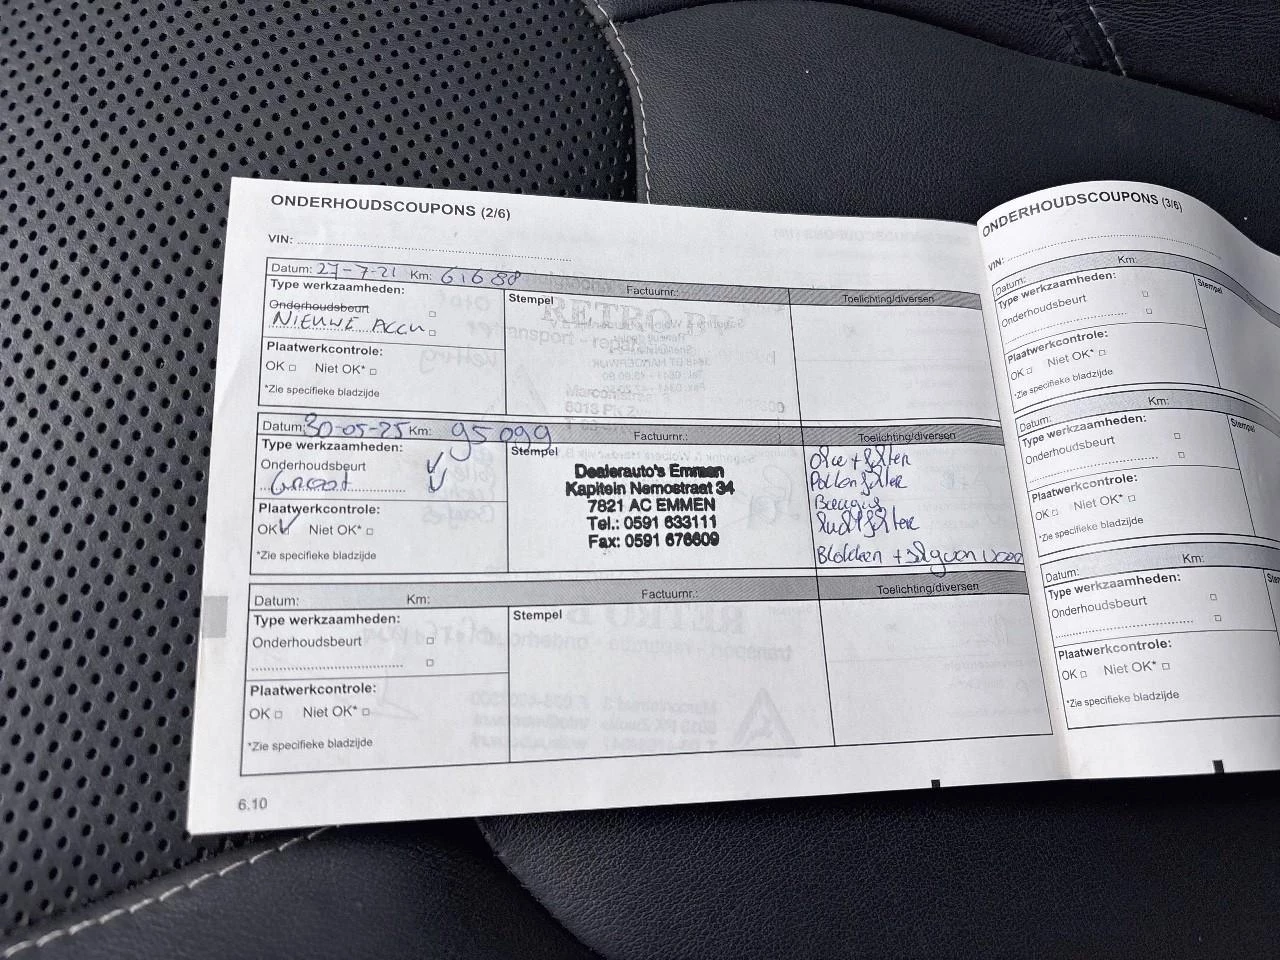 ONDERHOUDSCOUPONS (2/6)
VIN:
Datum: 27-7-21 Km: 61688 Factuurnr.: Toelichting/diversen
Type werkzaamheden:
Stempel
Onderhoudsbeurt
NIEUWE ACCU
Plaatwerkcontrole:
OK Niet OK*
*Zie specifieke bladzijde
Datum: 30-05-25 Km: 95099 Factuurnr.: Toelichting/diversen
Type werkzaamheden:
Stempel
Onderhoudsbeurt
Groot
Plaatwerkcontrole:
OK Niet OK*
*Zie specifieke bladzijde
Dealerauto's Emmen
Kapitein Nemostraat 34
7821 AC EMMEN
Tel.: 0591 633111
Fax: 0591 676609
Olie + filter
Pollenfilter
Bougies
Luchtfilter
Blokken + schijven voor
Datum: Km: Factuurnr.: Toelichting/diversen
Type werkzaamheden:
Stempel
Onderhoudsbeurt
Plaatwerkcontrole:
OK Niet OK*
*Zie specifieke bladzijde
6.10
ONDERHOUDSCOUPONS (3/6)
VIN:
Datum: Km:
Type werkzaamheden:
Stempel
Onderhoudsbeurt
Plaatwerkcontrole:
OK Niet OK*
*Zie specifieke bladzijde
Datum: Km:
Type werkzaamheden:
Stempel
Onderhoudsbeurt
Plaatwerkcontrole:
OK Niet OK*
*Zie specifieke bladzijde
Datum: Km:
Type werkzaamheden:
Onderhoudsbeurt
Plaatwerkcontrole:
OK Niet OK*
*Zie specifieke bladzijde